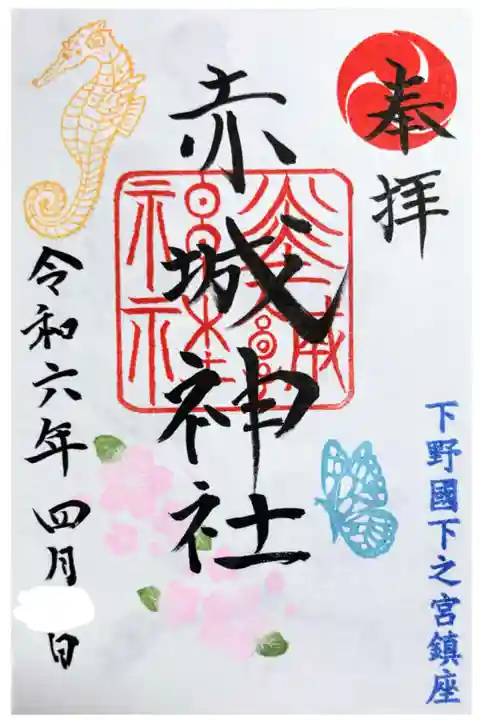 奉拝
下野國下之宮鎮座
赤城神社
令和六年 四月 日